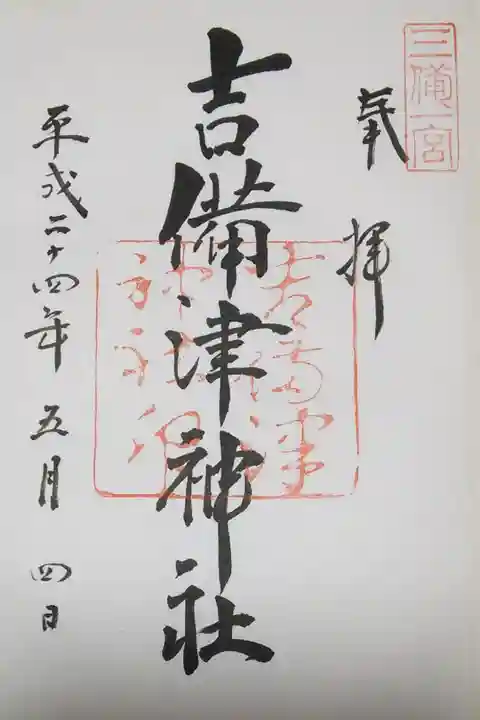 三備一宮
奉拝
吉備津神社
吉備津神社印
平成二十四年五月四日